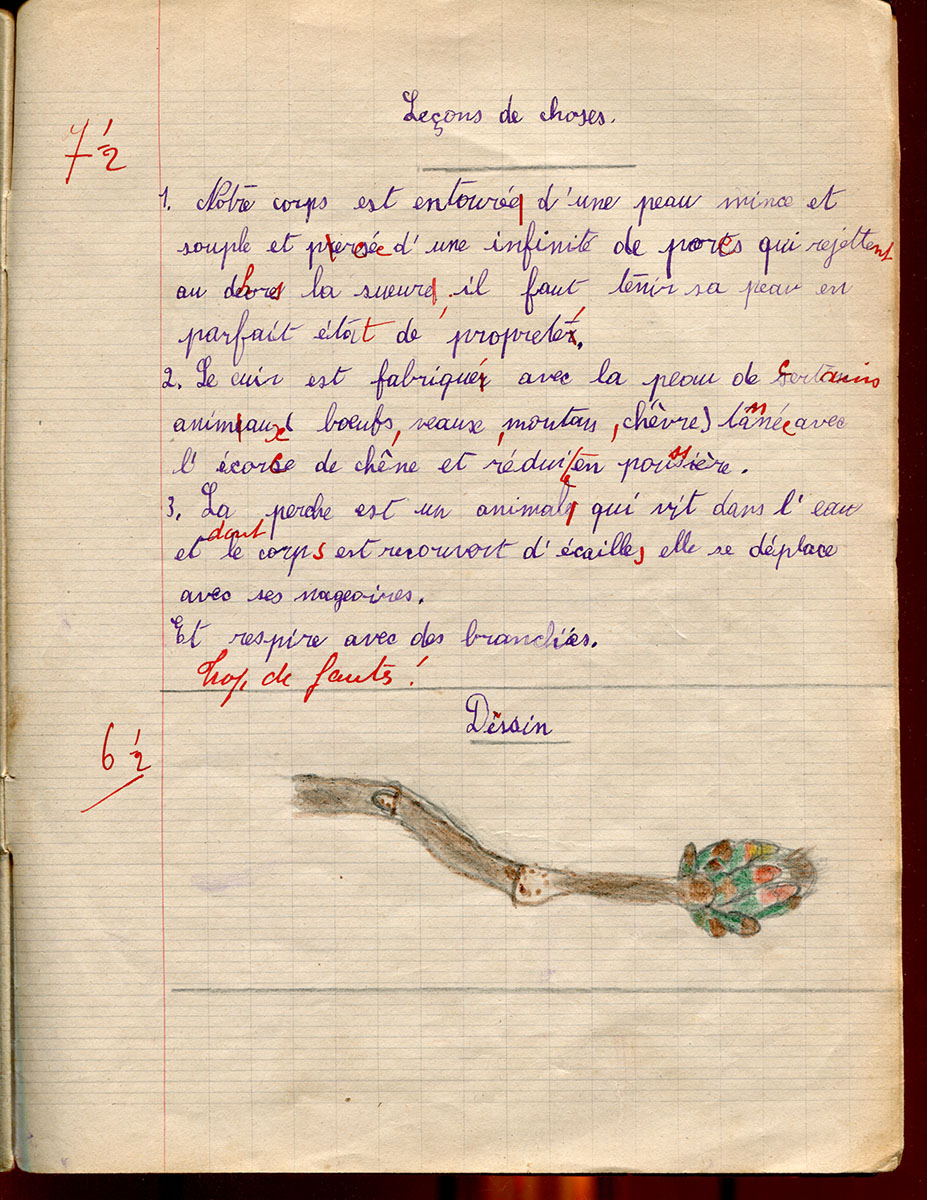 Leçons de choses.
7 1/2
1. Notre corps est entourée d'une peau mince et
souple et percée d'une infinité de pores qui rejettent
au dehors la sueur, il faut tenir sa peau en
parfait état de propreté.
2. Le cuir est fabriqué avec la peau de certains
animaux (bœufs, veaux, moutons, chèvre) tannée avec
l'écorce de chêne et réduite en poussière.
3. La perche est un animal qui vit dans l'eau
et dont le corps est recouvert d'écailles, elle se déplace
avec ses nageoires.
Et respire avec des branchies.
Trop de fautes !
Dessin
6 1/2